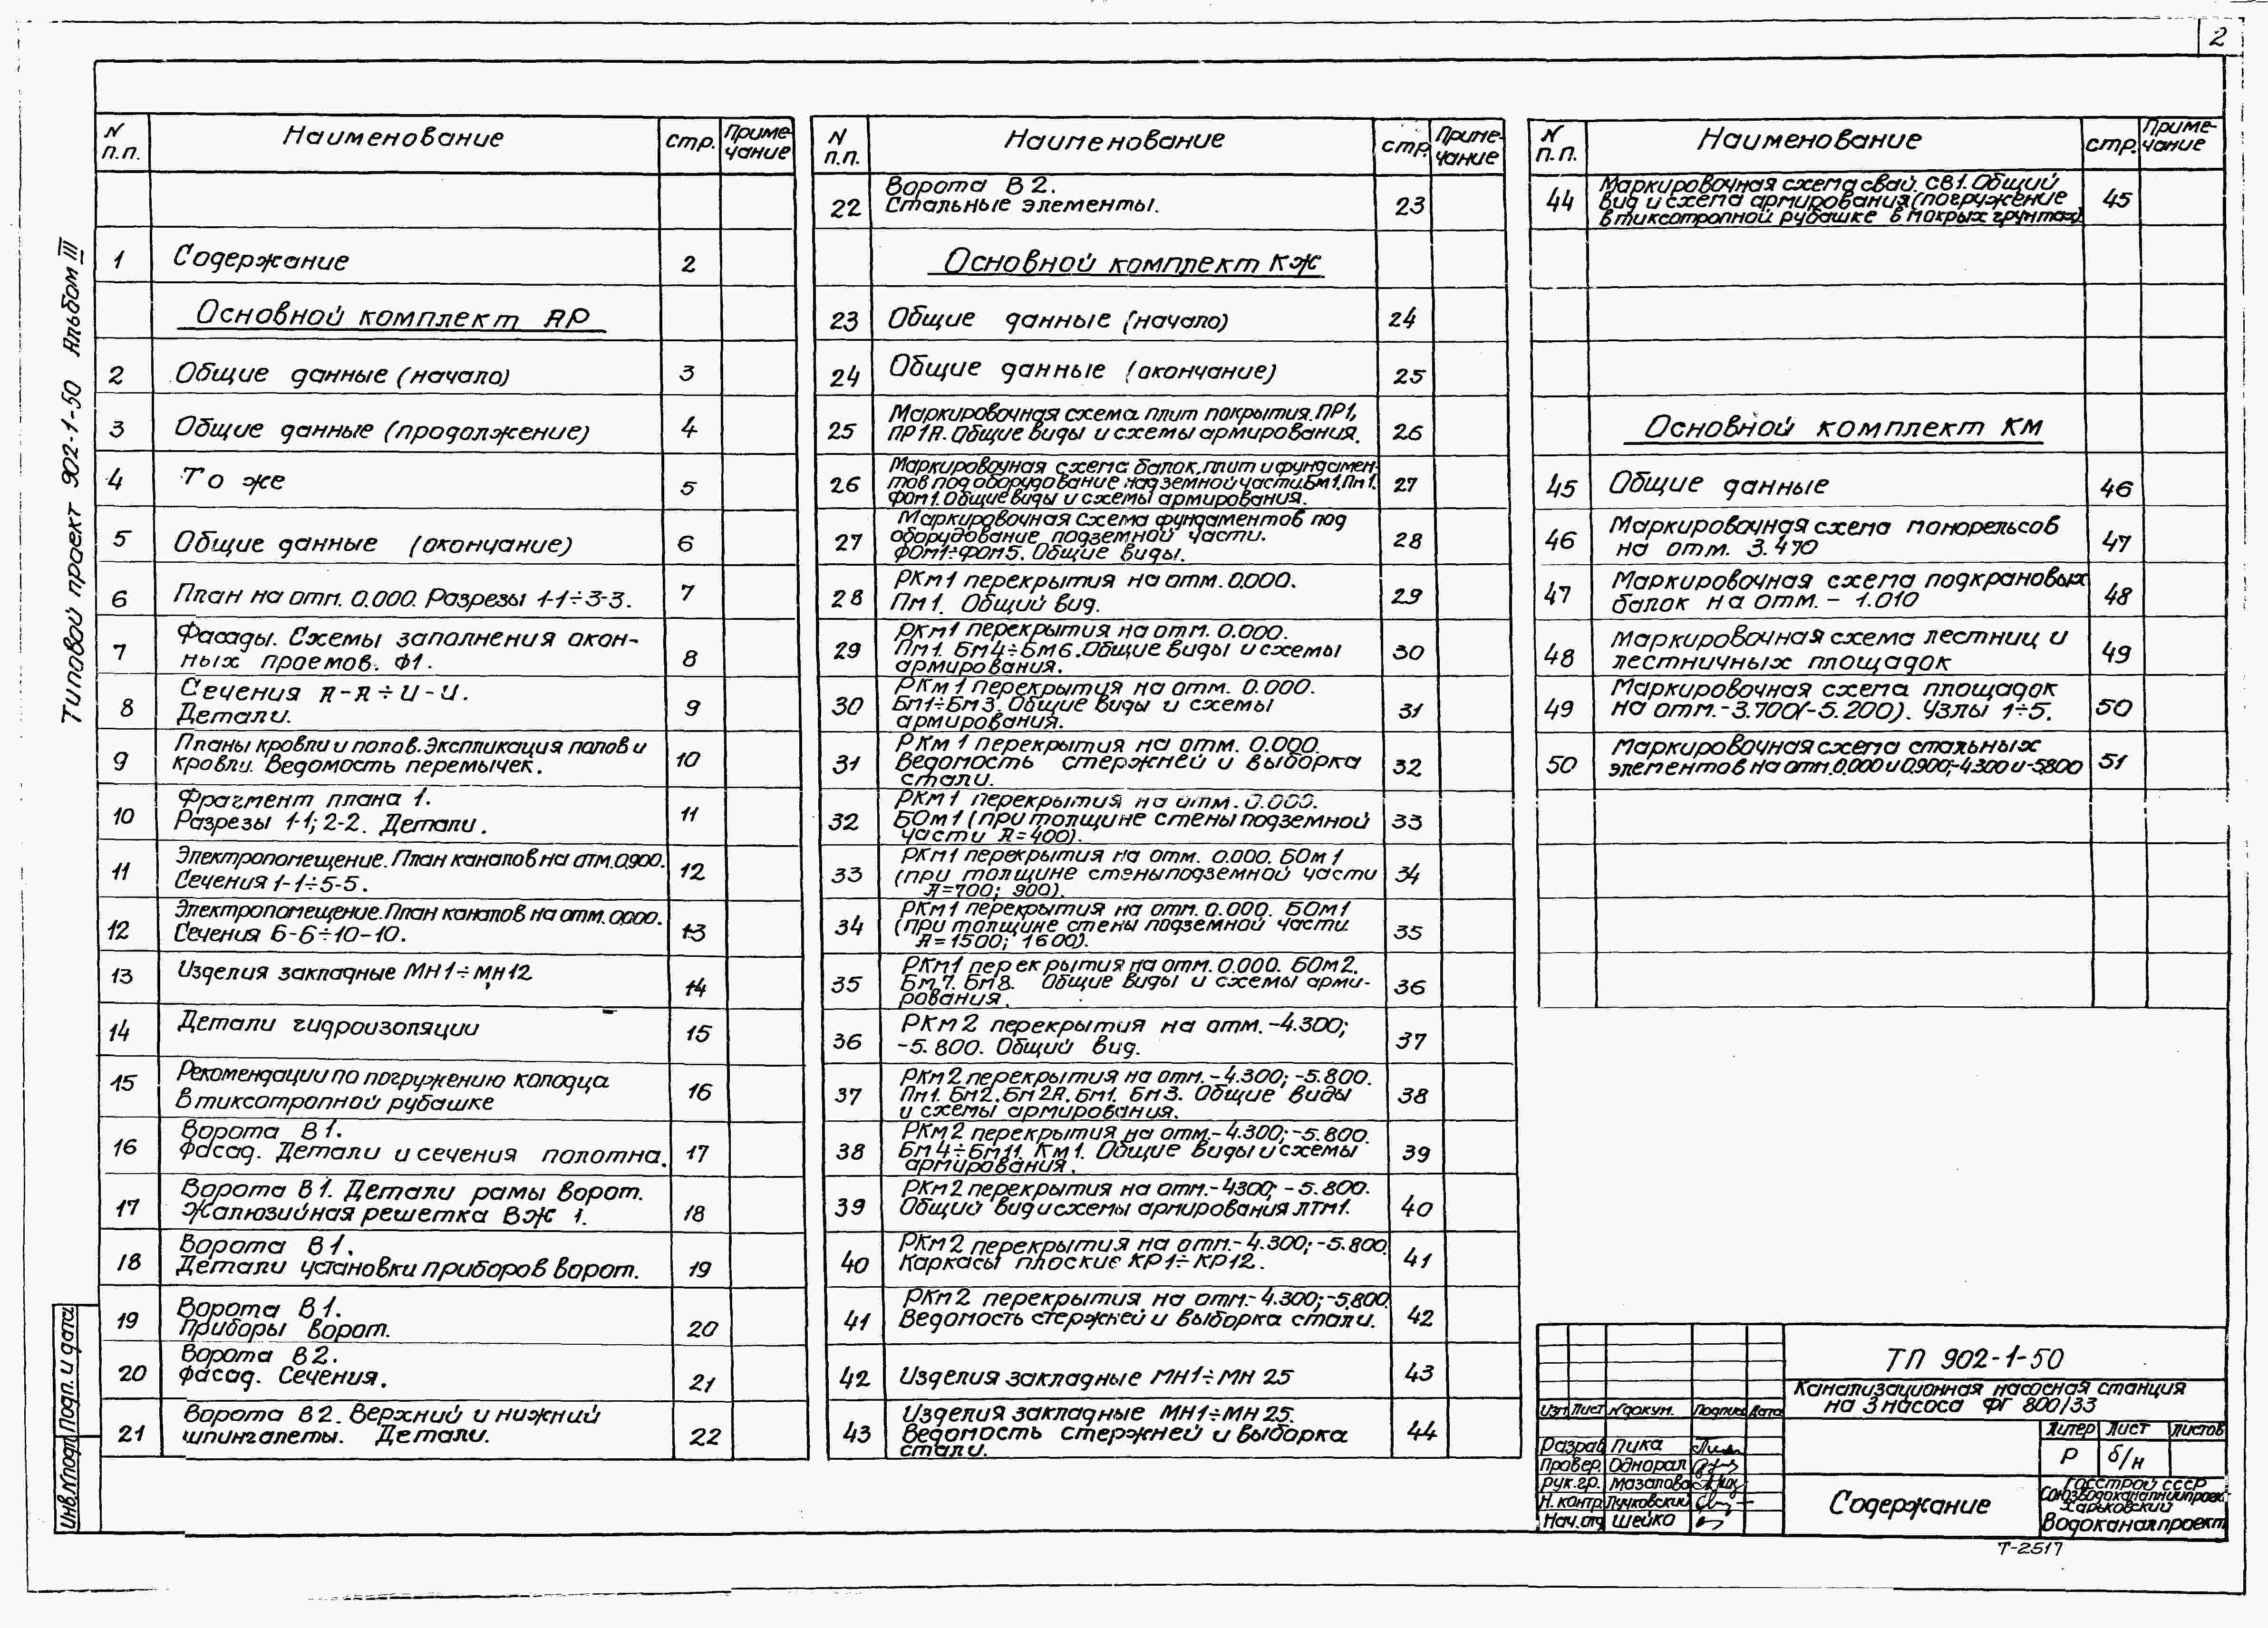 2
Типовой проект 902-1-50 Альбом III
N п.п. Наименование стр. Приме-чание
1 Содержание 2
Основной комплект АР
2 Общие данные (начало) 3
3 Общие данные (продолжение) 4
4 То же 5
5 Общие данные (окончание) 6
6 План на отм. 0.000. Разрезы 1-1÷3-3. 7
7 Фасады. Схемы заполнения окон-
ных проемов. Ф1. 8
8 Сечения А-А÷И-И.
Детали. 9
9 Планы кровли и полов. Экспликация полов и
кровли. Ведомость перемычек. 10
10 Фрагмент плана 1.
Разрезы 1-1; 2-2. Детали. 11
11 Электропомещение. План каналов на отм. 0.900.
Сечения 1-1÷5-5. 12
12 Электропомещение. План каналов на отм. 0.000.
Сечения 6-6÷10-10. 13
13 Изделия закладные МН1÷МН12 14
14 Детали гидроизоляции 15
15 Рекомендации по погружению колодца
в тиксотропной рубашке 16
16 Ворота В1.
Фасад. Детали и сечения полотна. 17
17 Ворота В1. Детали рамы ворот.
Жалюзийная решетка ВЖ 1. 18
18 Ворота В1.
Детали установки приборов ворот. 19
19 Ворота В1.
Приборы ворот. 20
20 Ворота В2.
Фасад. Сечения. 21
21 Ворота В2. Верхний и нижний
шпингалеты. Детали. 22
N п.п. Наименование стр. Приме-чание
22 Ворота В2.
Стальные элементы. 23
Основной комплект КЖ
23 Общие данные (начало) 24
24 Общие данные (окончание) 25
25 Маркировочная схема плит покрытия. ПР1,
ПР1А. Общие виды и схемы армирования. 26
26 Маркировочная схема балок, плит и фундамен-
тов под оборудование надземной части. Бм1. Пм1.
ФОм1. Общие виды и схемы армирования. 27
27 Маркировочная схема фундаментов под
оборудование подземной части.
ФОм1÷ФОм5. Общие виды. 28
28 РКм1 перекрытия на отм. 0.000.
Пм1. Общий вид. 29
29 РКм1 перекрытия на отм. 0.000.
Пм1. Бм4÷Бм6. Общие виды и схемы
армирования. 30
30 РКм1 перекрытия на отм. 0.000.
Бм1÷Бм3. Общие виды и схемы
армирования. 31
31 РКм1 перекрытия на отм. 0.000.
Ведомость стержней и выборка
стали. 32
32 РКм1 перекрытия на отм. 0.000.
БОм1 (при толщине стены подземной
части А=400). 33
33 РКм1 перекрытия на отм. 0.000. БОм1
(при толщине стены подземной части
А=700; 900). 34
34 РКм1 перекрытия на отм. 0.000. БОм1
(при толщине стены подземной части
А=1500; 1600). 35
35 РКм1 перекрытия на отм. 0.000. БОм2.
Бм7. Бм8. Общие виды и схемы арми-
рования. 36
36 РКм2 перекрытия на отм. -4.300;
-5.800. Общий вид. 37
37 РКм2 перекрытия на отм. -4.300; -5.800.
Пм1. Бм2. Бм2А. Бм1. Бм3. Общие виды
и схемы армирования. 38
38 РКм2 перекрытия на отм. -4.300; -5.800.
Бм4÷Бм11. Км1. Общие виды и схемы
армирования. 39
39 РКм2 перекрытия на отм. -4300; -5.800.
Общий вид и схемы армирования ЛТм1. 40
40 РКм2 перекрытия на отм. -4.300; -5.800.
Каркасы плоские КР1÷КР12. 41
41 РКм2 перекрытия на отм. -4.300; -5.800.
Ведомость стержней и выборка стали. 42
42 Изделия закладные МН1÷МН 25 43
43 Изделия закладные МН1÷МН 25.
Ведомость стержней и выборка
стали. 44
N п.п. Наименование стр. Приме-чание
44 Маркировочная схема свай. СВ1. Общий
вид и схема армирования (погружение
в тиксотропной рубашке в мокрых грунтах). 45
Основной комплект КМ
45 Общие данные 46
46 Маркировочная схема монорельсов
на отм. 3.470 47
47 Маркировочная схема подкрановых
балок на отм. - 1.010 48
48 Маркировочная схема лестниц и
лестничных площадок 49
49 Маркировочная схема площадок
на отм. -3.700 (-5.200). Узлы 1÷5. 50
50 Маркировочная схема стальных
элементов на отм. 0.000 и 0.900; -4.300 и -5.800 51
ТП 902-1-50
Канализационная насосная станция
на 3 насоса ФГ 800/33
Изм Лист N докум. Подпись Дата
Литер Лист Листов
Р б/н
Разраб Пика
Провер. Однорал
Рук. гр.
Н. контр.
Нач. отд Шейко
Содержание
Госстрой СССР
Союзводоканалниипроект
Харьковский
Водоканалпроект
Т-2517
Инв. N подл. Подп. и дата